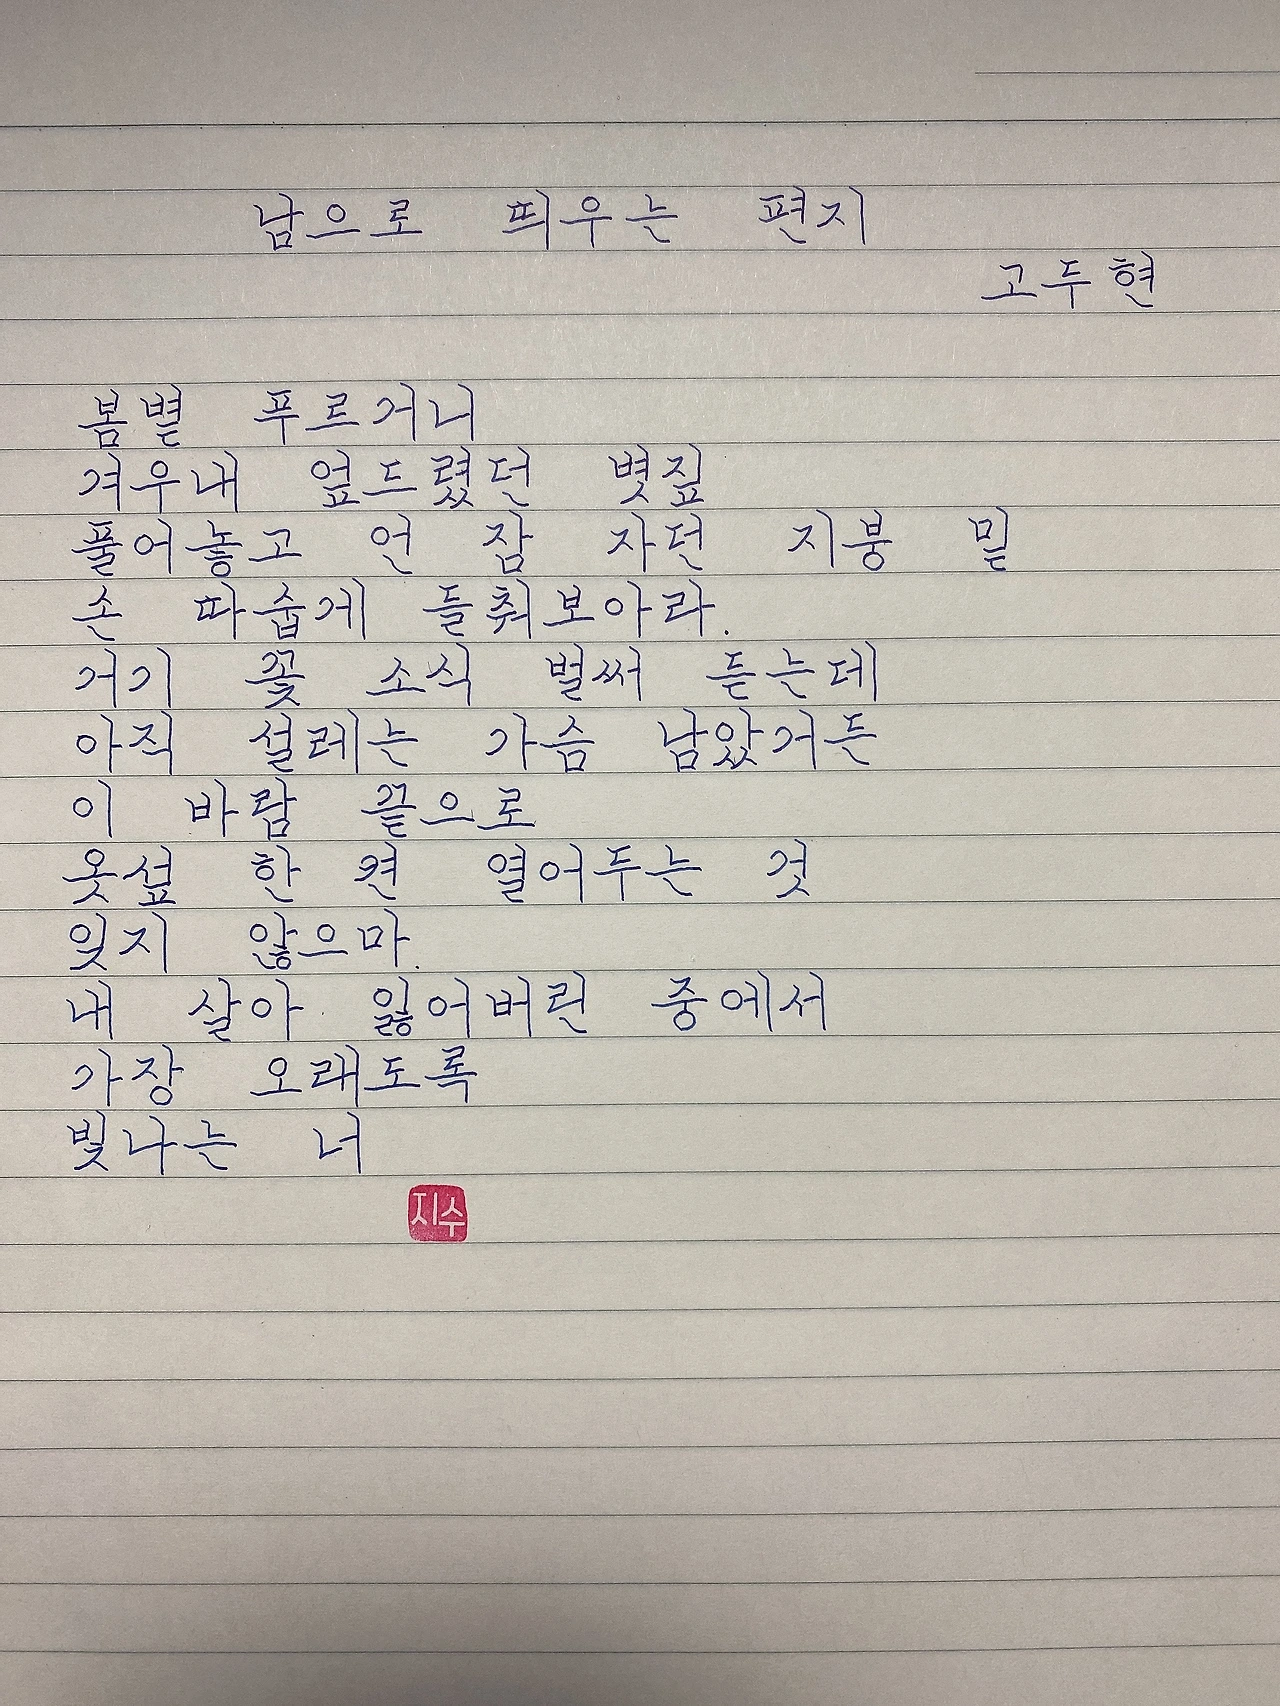 남으로 띄우는 편지
고두현
봄볕 푸르거니
겨우내 엎드렸던 볏짚
풀어놓고 언 잠 자던 지붕 밑
손 따숩게 들춰보아라.
거기 꽃 소식 벌써 듣는데
아직 설레는 가슴 남았거든
이 바람 끝으로
옷섶 한 켠 열어두는 것
잊지 않으마.
내 살아 잃어버린 중에서
가장 오래도록
빛나는 너
지수